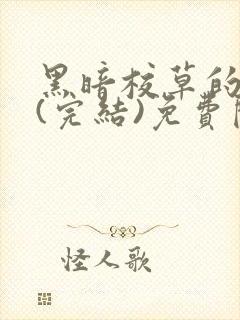 黑暗校草的
(完結)免費
怪人歌